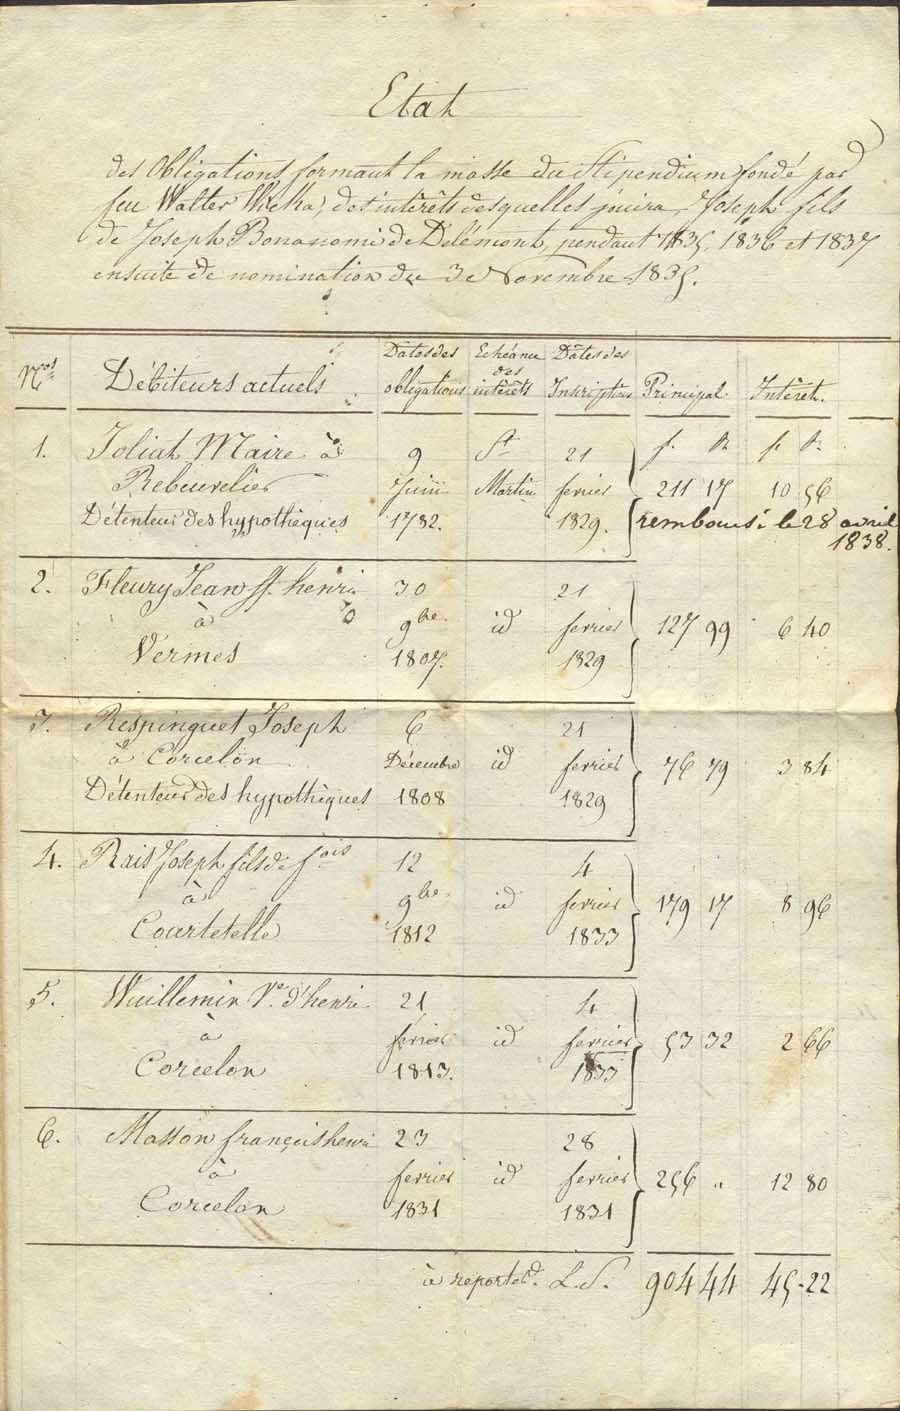 Etat
des obligations formant la masse du Stipendium fondé par
feu Walter, des intérêts desquelles jouira, Joseph fils
de Joseph Bonanomi de Delémont, pendant 1835, 1836 et 1837
ensuite de nomination du 3 Novembre 1835.
Nos Débiteurs actuels Dates des obligations Echéance des intérêts Dâtes des Inscriptions Principal Intérêt.
f. R f. R.
1. Joliat Maire à 9 St 21
Rebeuvelier Juin Martin fevrier 211 17 10 56
Détenteur des hypothèques 1782. 1829. remboursé le 28 avril
1838.
2. Fleury Jean ff. henri 30 21
à 9bre. id fevrier 127 99 6 40
Vermes 1807. 1829
3. Respinguet Joseph 6 21
à Corcelon Décembre id fevrier 76 79 3 84
Détenteur des hypothèques 1808 1829
4. Rais Joseph fils de fois 12 4
à 9bre. id fevrier 179 17 8 96
Courtetelle 1812 1833
5. Wuillemin Ve. d'henri 21 4
à fevrier id fevrier 53 32 2 66
Corcelon 1813. 1833
6. Masson françois henri 23 28
à fevrier id fevrier 256 " 12 80
Corcelon 1831 1831
à reporter. L.S. 904 44 45-22